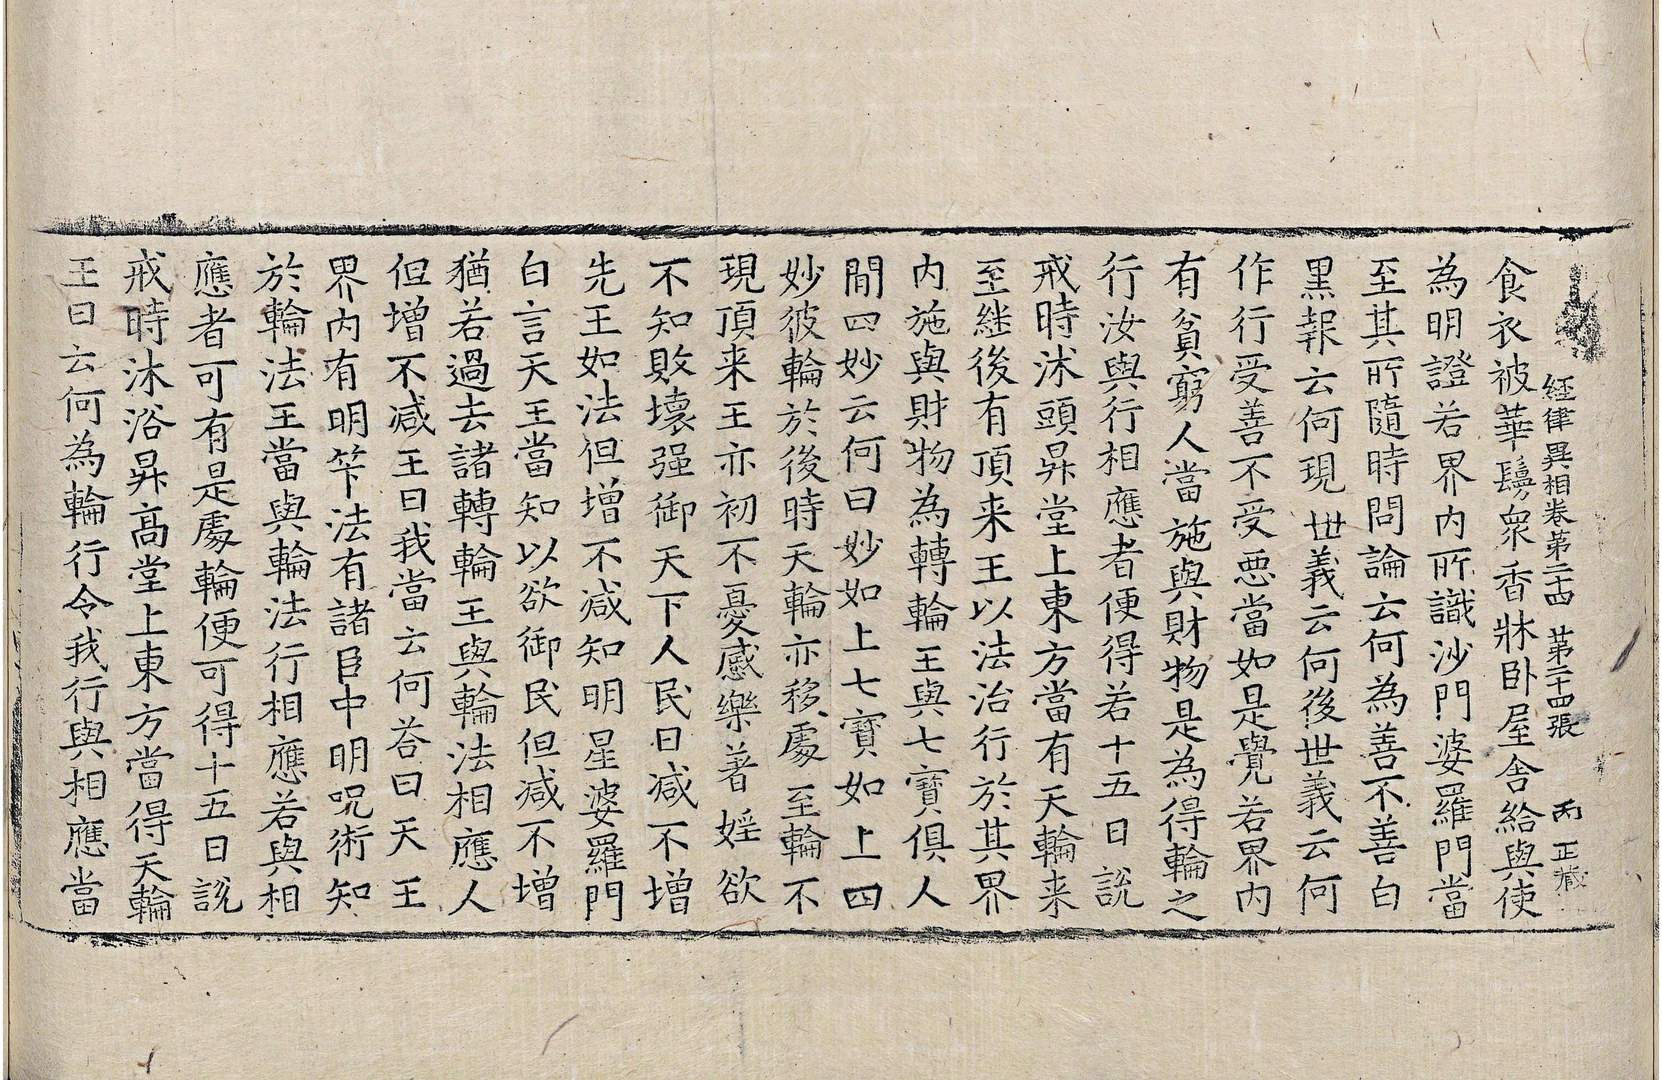 経律異相卷第二十四　第二十四張　丙　正藏
食衣被華鬘衆香牀卧屋舍給與使
為明證若界內所識沙門婆羅門當
至其所隨時問論云何為善不善白
黒報云何現世義云何後世義云何
作行受善不受悪當如是覺若界內
有貧窮人當施與財物是為得輪之
行汝與行相應者便得若十五日說
戒時沐頭昇堂上東方當有天輪来
至継後有頂来王以法治行於其界
內施與財物為轉輪王與七寶俱人
間四妙云何曰妙如上七寶如上四
妙彼輪於後時天輪亦移處至輪不
現頂来王亦初不憂慼樂著婬欲
不知敗壞强御天下人民日减不增
先王如法但增不减知明星婆羅門
白言天王當知以欲御民但减不增
猶若過去諸轉輪王與輪法相應人
但增不减王曰我當云何荅曰天王
界內有明竿法有諸臣中明呪術知
於輪法王當與輪法行相應若與相
應者可有是處輪便可得十五日說
戒時沐浴昇高堂上東方當得天輪
王曰云何為輪行令我行與相應當